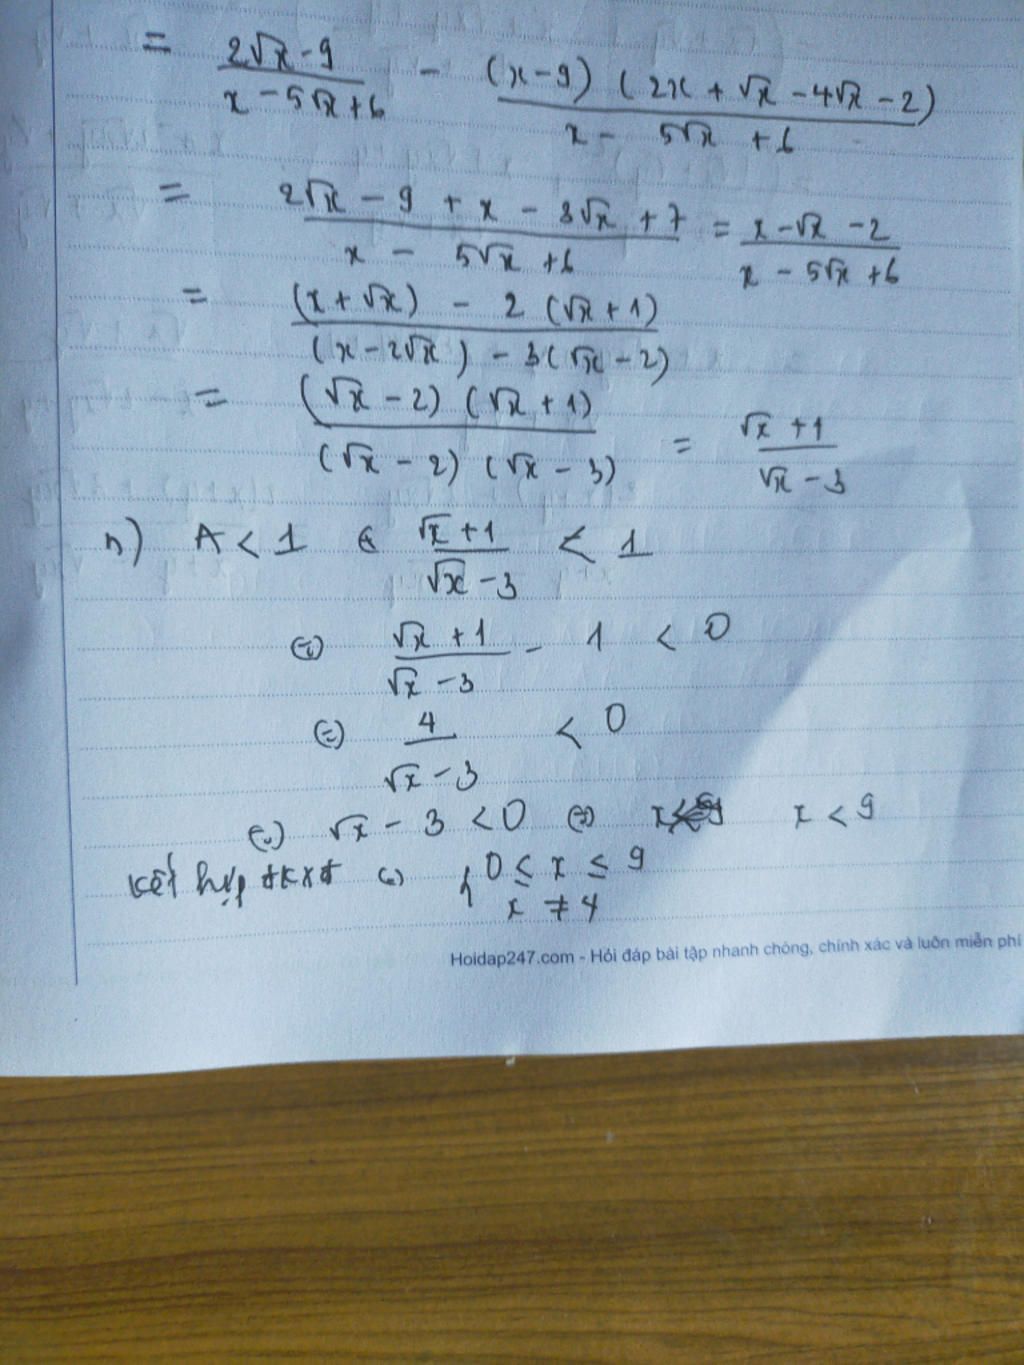 = (2√x - 9)/(x - 5√x + 6) - (x - 9) (2x + √x - 4√x - 2)/(x - 5√x + 6)
= (2√x - 9 + x - 3√x + 7)/(x - 5√x + 6) = (x - √x - 2)/(x - 5√x + 6)
= ((x + √x) - 2 (√x + 1))/((x - 2√x) - 3(√x - 2))
= ((√x - 2) (√x + 1))/((√x - 2) (√x - 3)) = (√x + 1)/(√x - 3)
A < 1 (√x + 1)/(√x - 3) < 1
(=) (√x + 1)/(√x - 3) - 1 < 0
(=) 4/(√x - 3) < 0
(=) √x - 3 < 0 (=) x < 9
kết hợp đkxđ { 0 ≤ x ≤ 9
x ≠ 4
Hoidap247.com - Hỏi đáp bài tập nhanh chóng, chính xác và luôn miễn phí